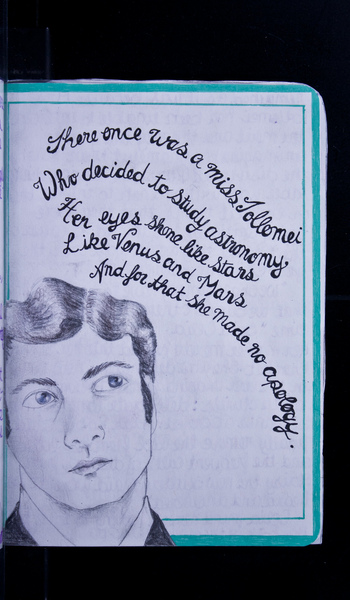 There once was a miss Tollemei
Who decided to study astronomy,
Her eyes shone like stars
Like Venus and Mars
And for that she made no apology.